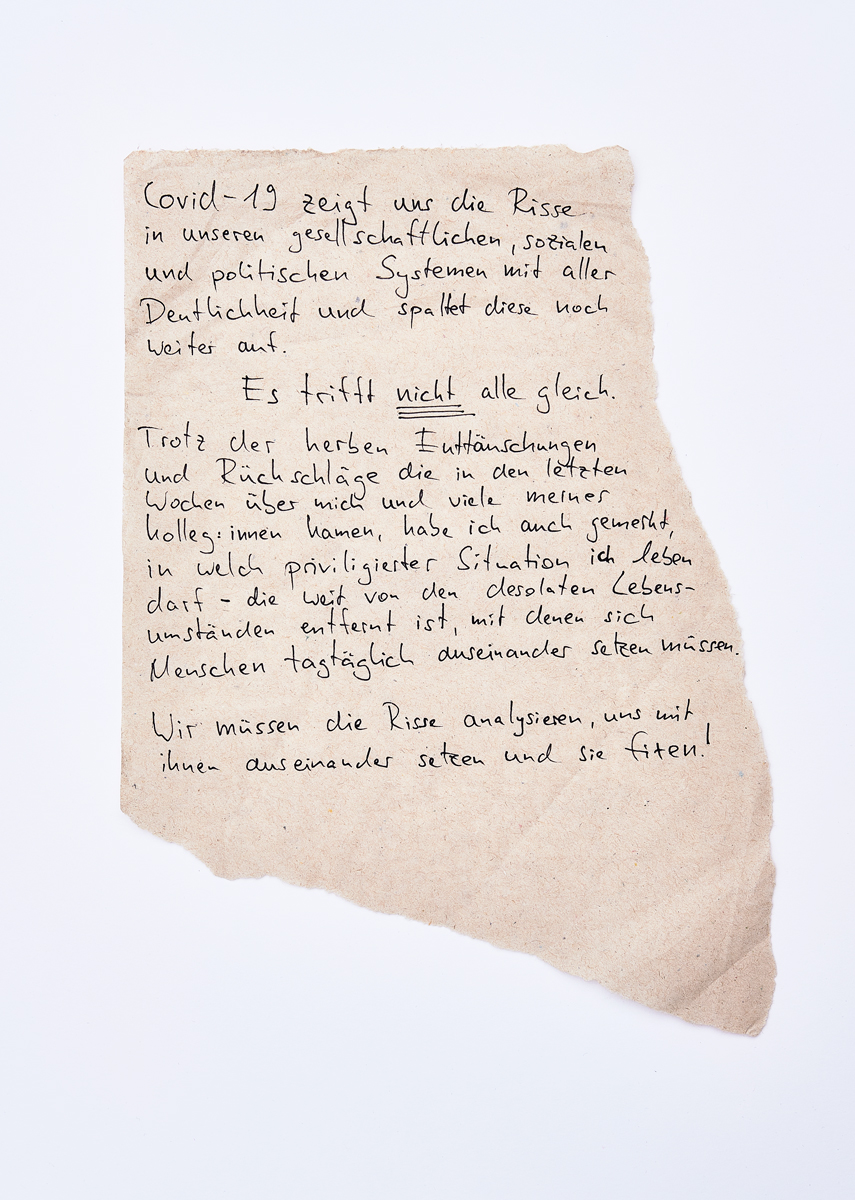 Covid-19 zeigt uns die Risse
in unseren gesellschaftlichen, sozialen
und politischen Systemen mit aller
Deutlichkeit und spaltet diese noch
weiter auf.
Es trifft nicht alle gleich.
Trotz der herben Enttäuschungen
und Rückschläge die in den letzten
Wochen über mich und viele meiner
Kolleg:innen kamen, habe ich auch gemerkt,
in welch priviligierter Situation ich leben
darf - die weit von den desolaten Lebens-
umständen entfernt ist, mit denen sich
Menschen tagtäglich auseinander setzen müssen.
Wir müssen die Risse analysieren, uns mit
ihnen auseinander setzen und sie fixen!